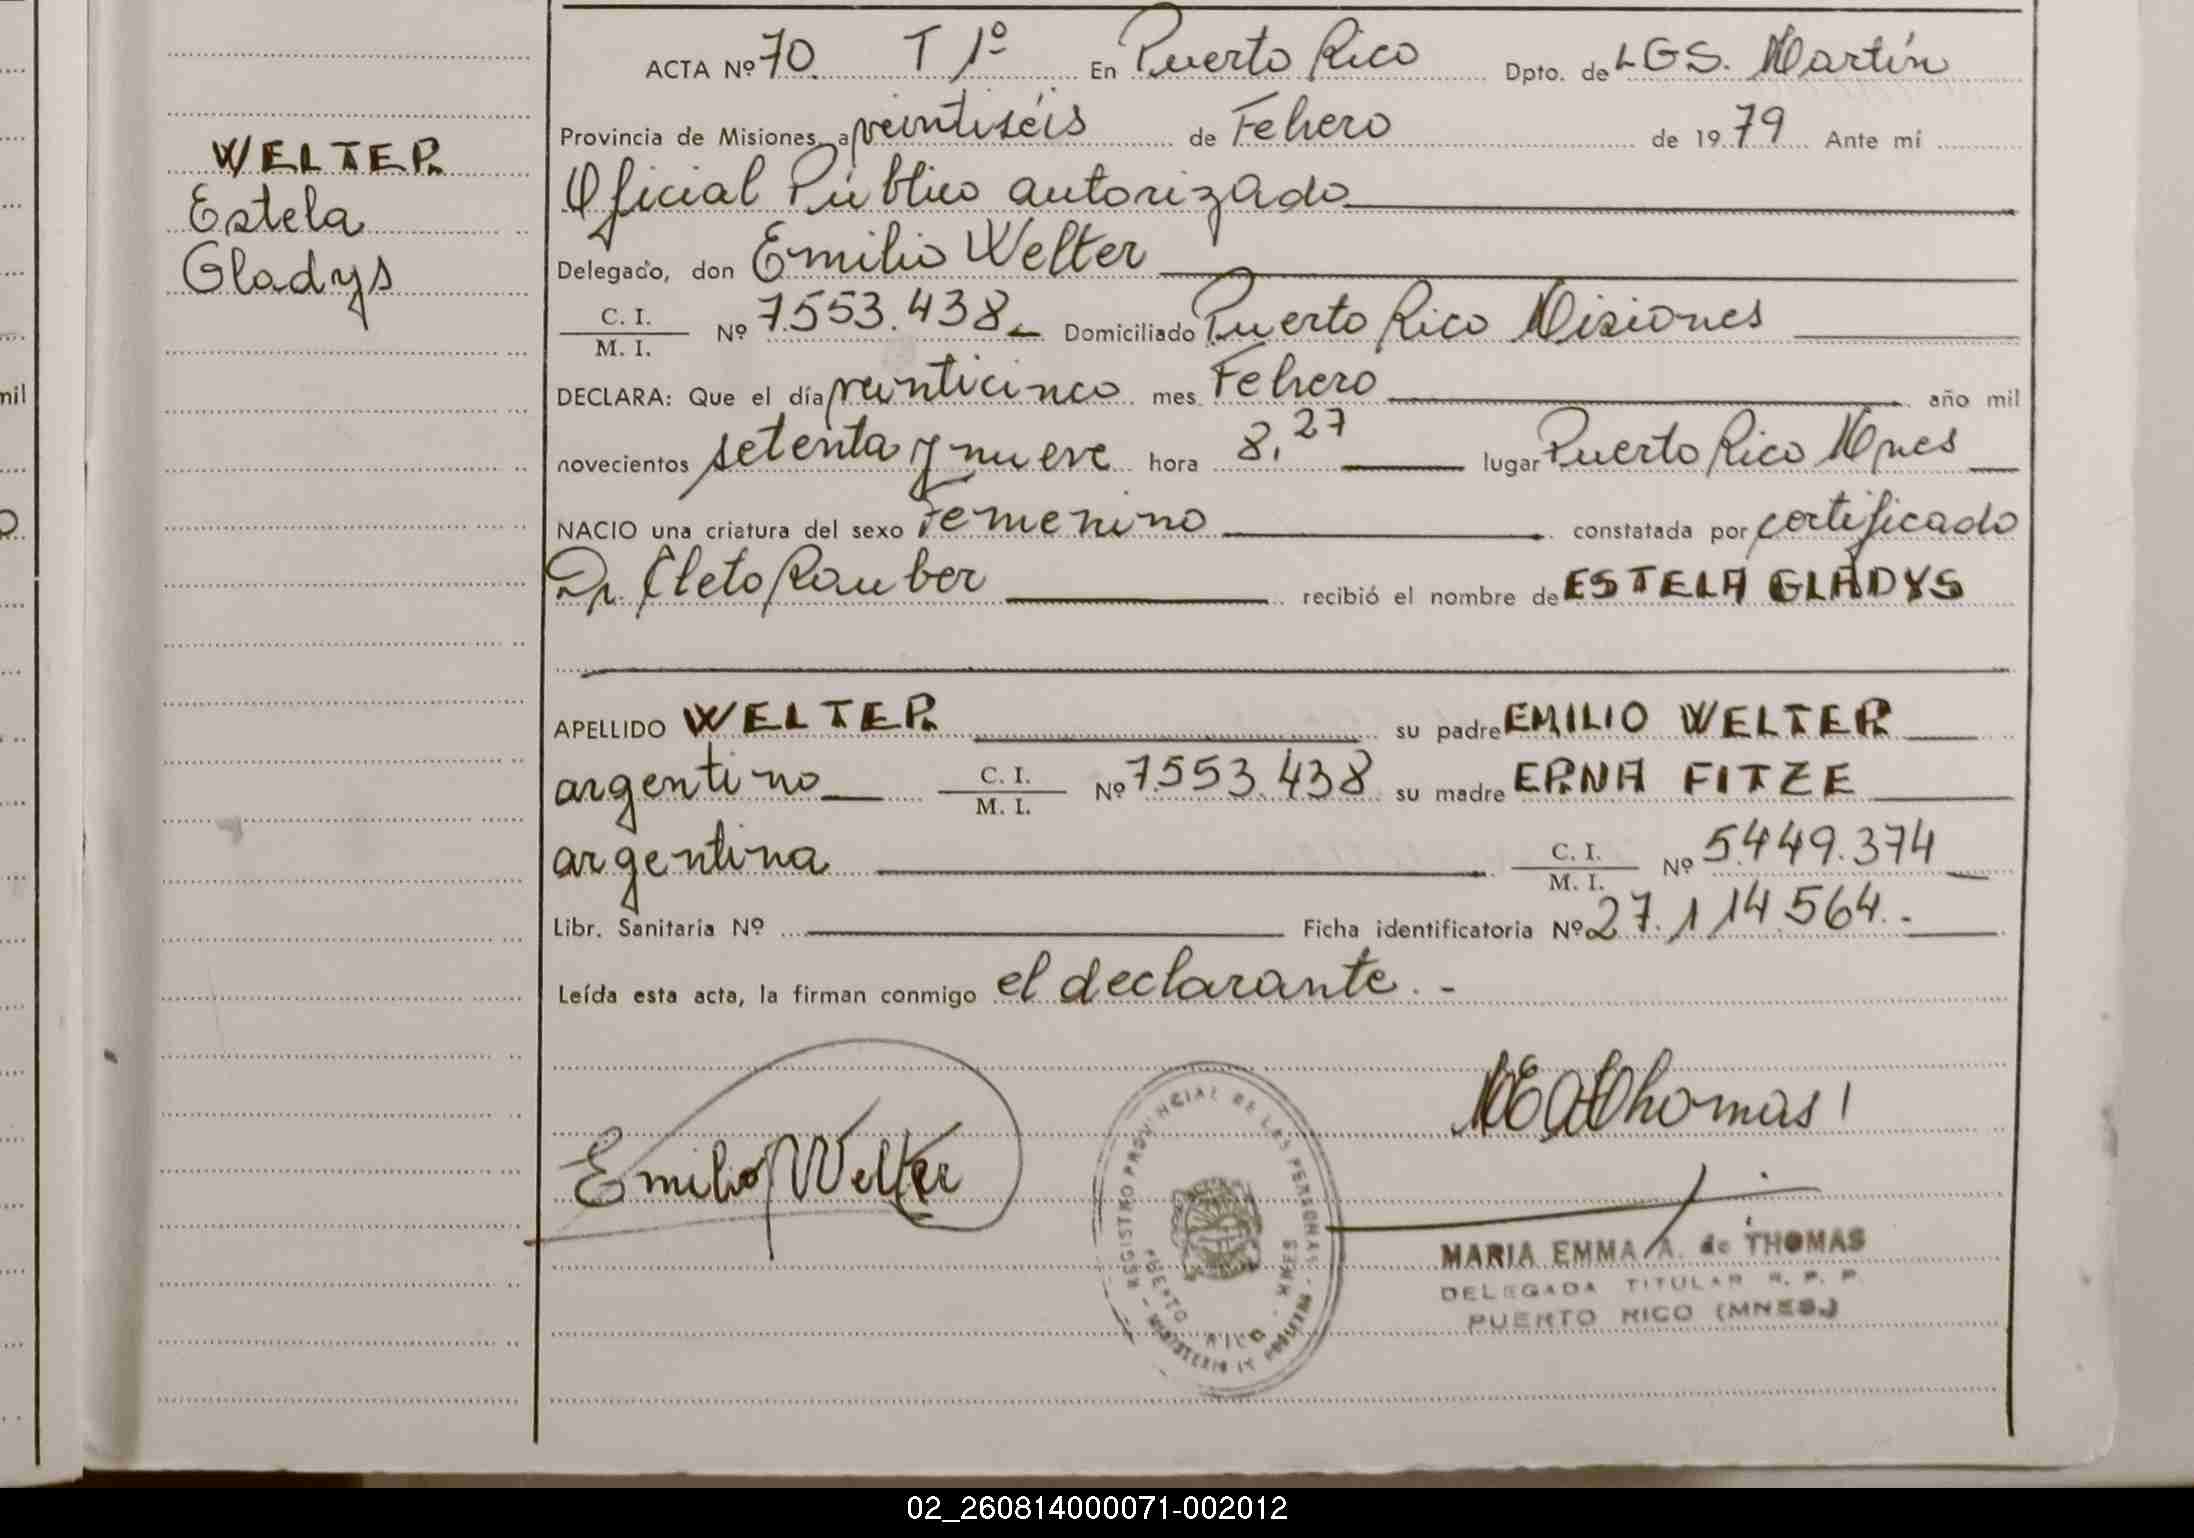 WELTER
Estela
Gladys
ACTA Nº 70 T 1º En Puerto Rico Dpto. de LGS. Martín
Provincia de Misiones, a veintiséis de Febrero de 1979 Ante mí
Oficial Público autorizado
Delegado, don Emilio Welter
C. I.
M. I. Nº 7.553.438 Domiciliado Puerto Rico Misiones
DECLARA: Que el día veinticinco mes Febrero año mil
novecientos setenta y nueve hora 8,27 lugar Puerto Rico Mnes
NACIO una criatura del sexo Femenino constatada por certificado
Dr. Cleto Rauber recibió el nombre de ESTELA GLADYS
APELLIDO WELTER su padre EMILIO WELTER
argentino C. I. M. I. Nº 7.553.438 su madre ERNA FITZE
argentina C. I. M. I. Nº 5.449.374
Libr. Sanitaria Nº Ficha identificatoria Nº 27.114.564.-
Leída esta acta, la firman conmigo el declarante.-
Emilio Welter
MEAThomas
REGISTRO PROVINCIAL DE LAS PERSONAS
PUERTO RICO
MARIA EMMA A. de THOMAS
DELEGADA TITULAR R. P. P.
PUERTO RICO (MNES.)
mil
02_260814000071-002012